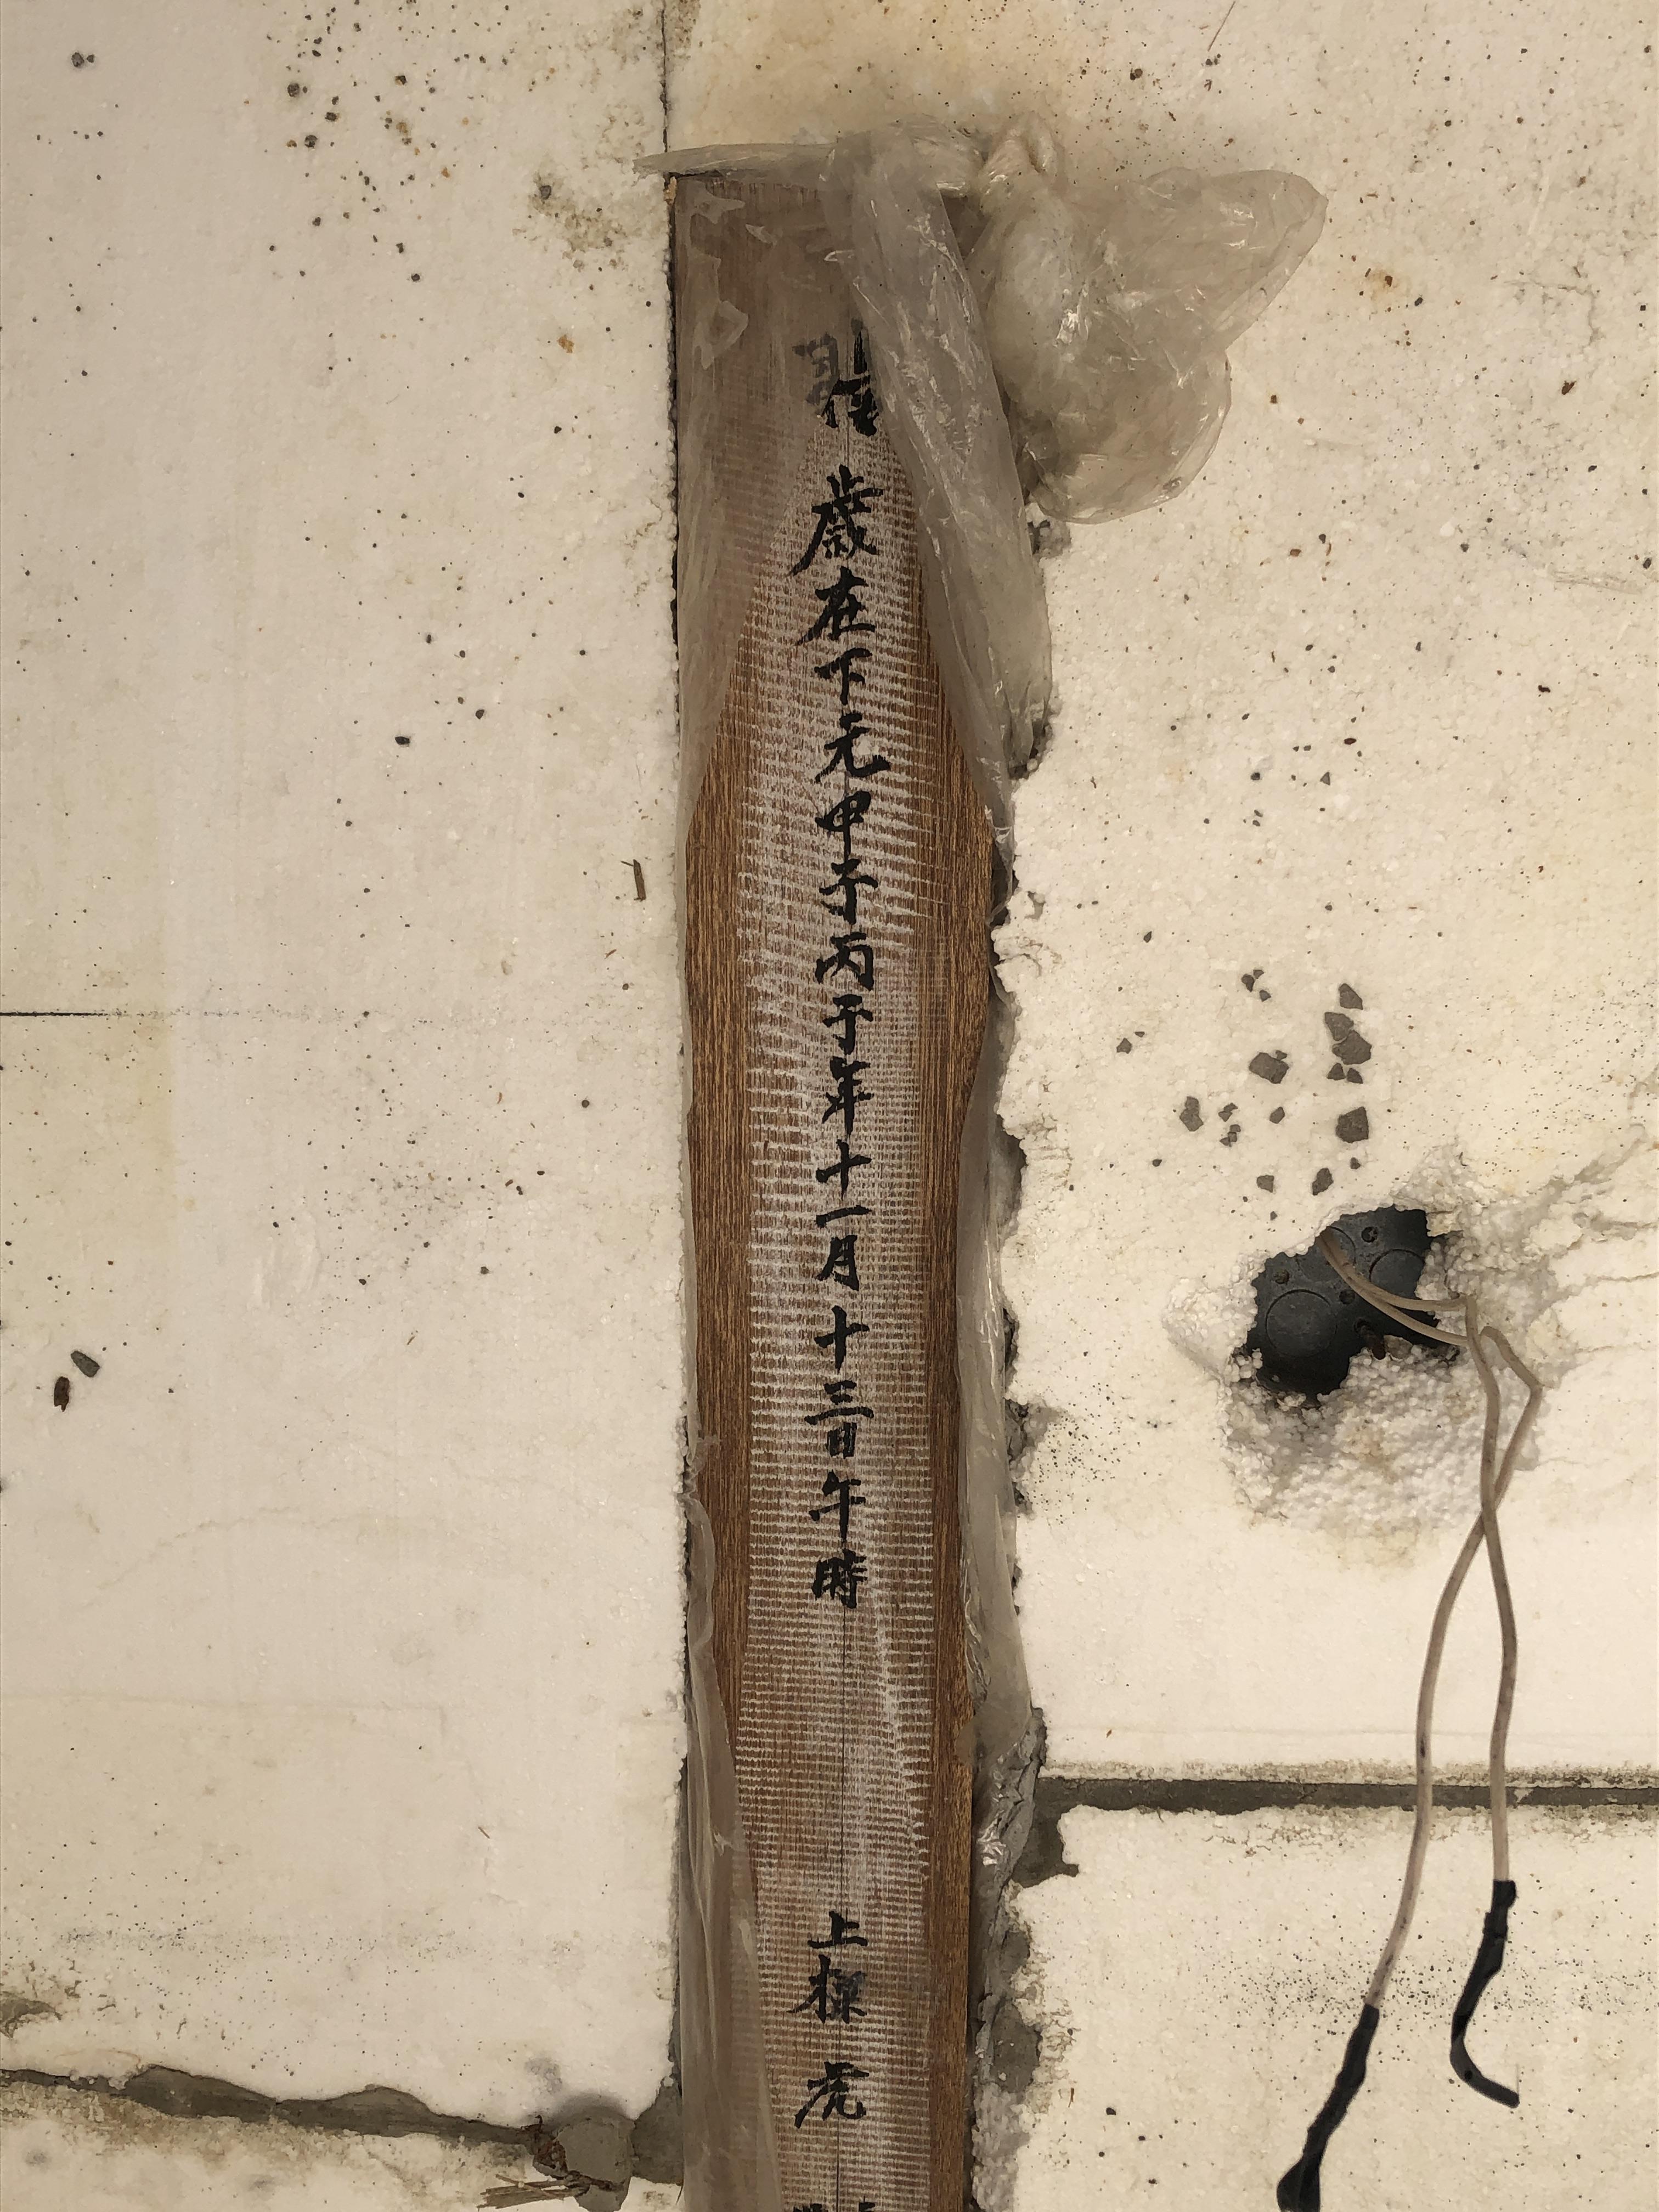 歲在下元甲子丙子年十一月十三日午時 上樑 虎